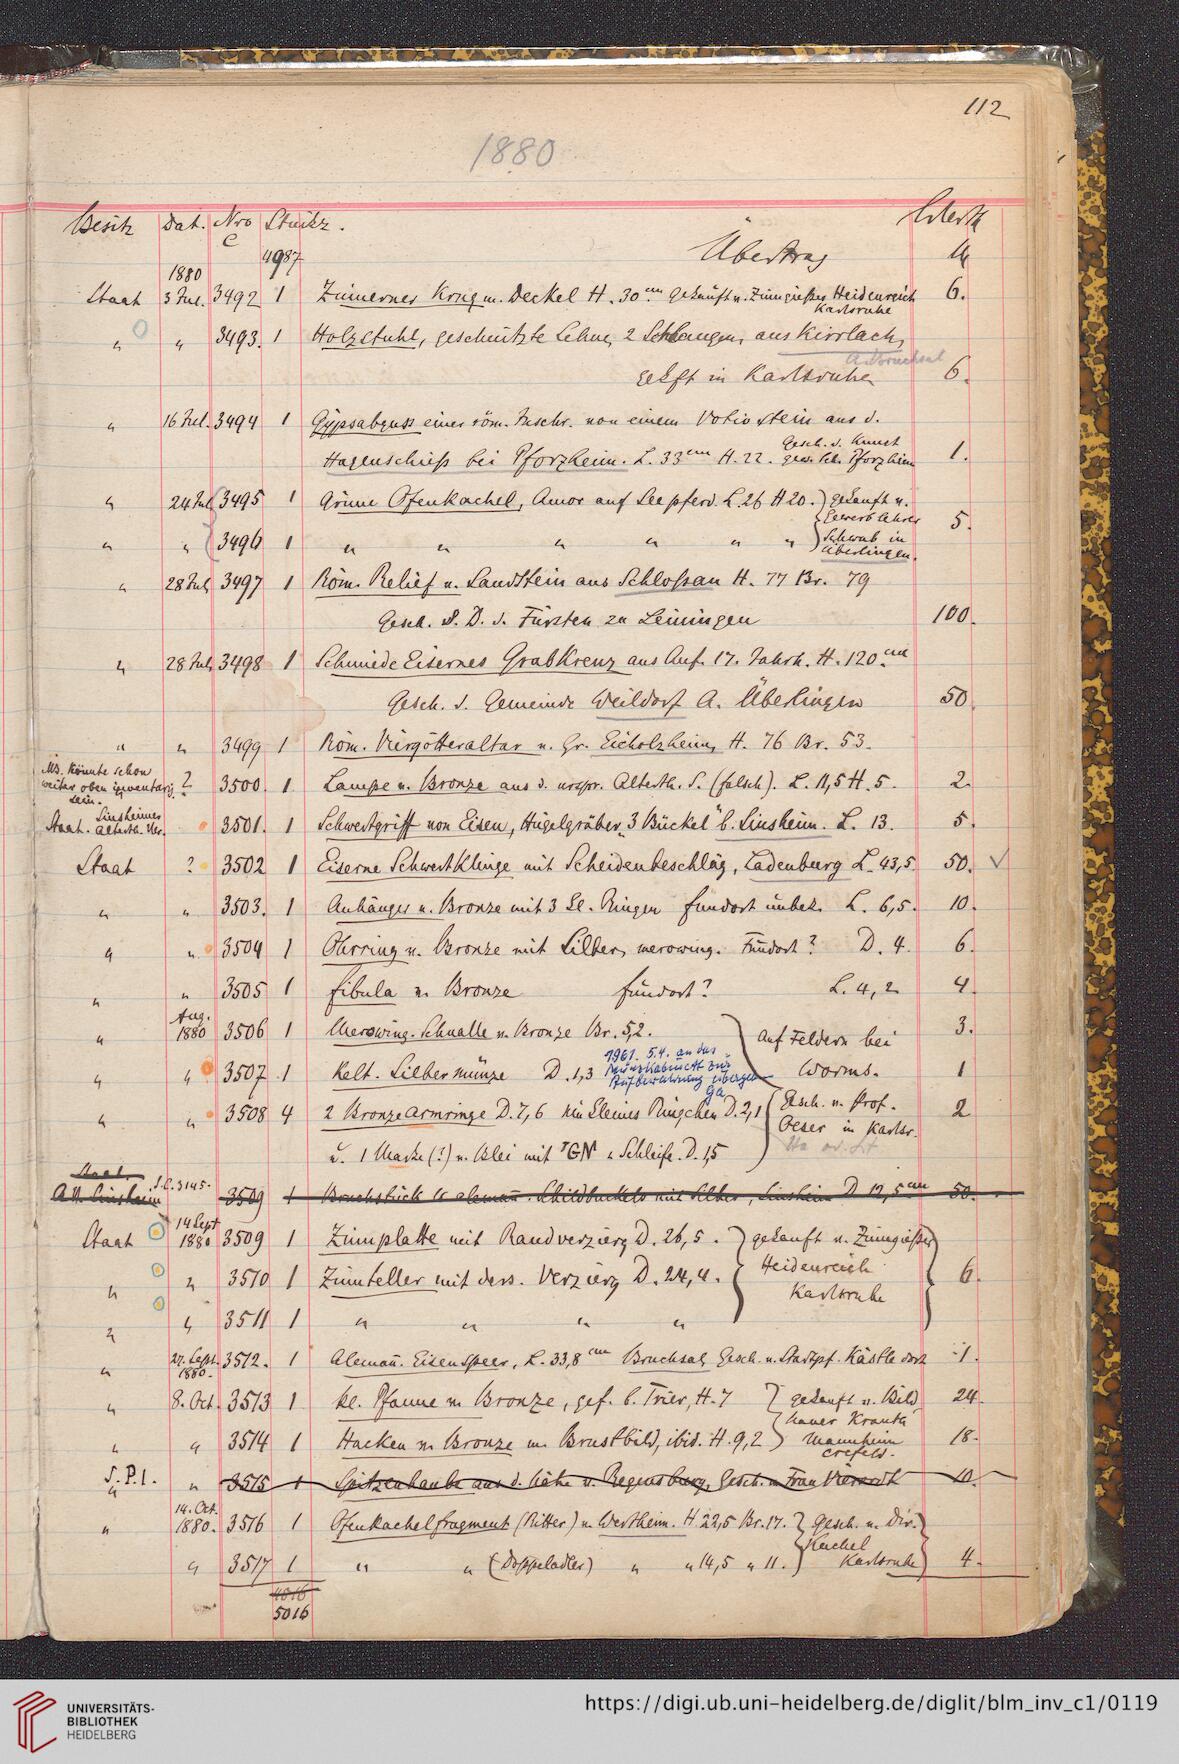 112
1880
Besitz Dat. Nro Stückz. Werth
C
4987 Übertrag M
1880
Staat 3 Jul. 3492 1 Zinnernes Krug m. Deckel H. 30 cm gekauft v. Zinngießer Heidenreich 6.
Karlsruhe
" " 3493. 1 Holzstuhl, geschnitzte Lehne, 2 Schlangen, aus Kirrlach,
A. Bruchsal
gekft in Karlsruhe 6.
" 16 Jul. 3494 1 Gypsabguss einer röm. Inschr. von einem Votivstein aus d.
Gesch. d. Kunst
Hagenschieß bei Pforzheim. L. 33 cm H. 22. gew. Sch. Pforzheim 1.
" 24 Jul 3495 1 Grüne Ofenkachel, Amor auf Seepferd. L. 26 H 20. gekauft v.
Gewerblehrer 5.
" " 3496 1 " " " " " " Schwab in
Überlingen.
" 28 Jul 3497 1 Röm. Relief v. Sandstein aus Schloßau H. 77 Br. 79
Gesch. S. D. d. Fürsten zu Leiningen 100.
" 28 Jul 3498 1 Schmiedeisernes Grabkreuz aus Anf. 17. Jahrh. H. 120 cm
Gesch. d. Gemeinde Weildorf A. Überlingen 50.
" " 3499 1 Röm. Viergötteraltar v. Gr. Eicholzheim, H. 76 Br. 53.
NB. könnte schon
weiter oben inventaris.
sein. ? 3500. 1 Lampe v. Bronze aus d. urspr. Alterth. S. (falsch). L. 11,5 H. 5. 2.
Sinsheimer
Staat. Alterth. Ver. 3501. 1 Schwertgriff von Eisen, Hügelgräber "3 Bückel" b. Sinsheim. L. 13. 5.
Staat ? 3502 1 Eiserne Schwertklinge mit Scheidenbeschläg, Ladenburg L. 43,5. 50. ✓
" " 3503. 1 Anhänger v. Bronze mit 3 kl. Ringen Fundort unbek. L. 6,5. 10.
" " 3504 1 Ohrring v. Bronze mit Silber, merowing. Fundort? D. 4. 6.
" " 3505 1 Fibula v. Bronze Fundort? L. 4,2 4.
Aug.
" 1880 3506 1 Merowing. Schnalle v. Bronze Br. 5,2. auf Feldern bei 3.
1961. 5.4. an das
" " 3507 1 Kelt. Silbermünze D. 1,3 Münzkabinett zur Worms. 1
Aufbewahrung übergeben
Ga
" " 3508 4 2 Bronzearmringe D. 7,6 ein kleines Ringchen D. 2,1 Gesch. v. Prof. 2
Oeser in Karlsr.
u. 1 Marke (?) v. Blei mit TGN u Schleife. D. 1,5
Staat
A.V. Sinsheim s. C. 3145. 3509 1 Bruchstück v. aleman. Schildbuckels mit Silber, Sinsheim D 12,5 cm 50.
14 Sept
Staat 1880 3509 1 Zinnplatte mit Randverzierg D. 26,5. gekauft v. Zinngießer
" " 3510 1 Zinnteller mit ders. Verzierg D. 24,4. Heidenreich 6.
Karlsruhe
" " 3511 1 " " " "
" 27. Sept. 1880. 3512. 1 Aleman. Eisenspeer, L. 33,8 cm Bruchsal, Gesch. v. Stadtpf. Kästle dort 1.
" 8. Oct. 3513 1 kl. Pfanne v. Bronze, gef. b. Trier, H. 7 gekauft v. Bild 24.
hauer Krauth
" " 3514 1 Hacken v. Bronze m. Brustbild, ibid. H. 9,2 Mannheim 18.
Crefeld.
S. P. 1. " 3515 1 Spitzenhaube aus d. Nähe v. Regensburg, Gesch. v. Frau Vierordt 10.
14. Oct.
" 1880. 3516 1 Ofenkachelfragment (Ritter) v. Wertheim. H 22,5 Br. 17. Gesch. v. Dir.
Kachel
" 3517 1 " " (Doppeladler) " " 14,5 " 11. Karlsruhe 4.
5016
UNIVERSITÄTS-
BIBLIOTHEK
HEIDELBERG
https://digi.ub.uni-heidelberg.de/diglit/blm_inv_c1/0119